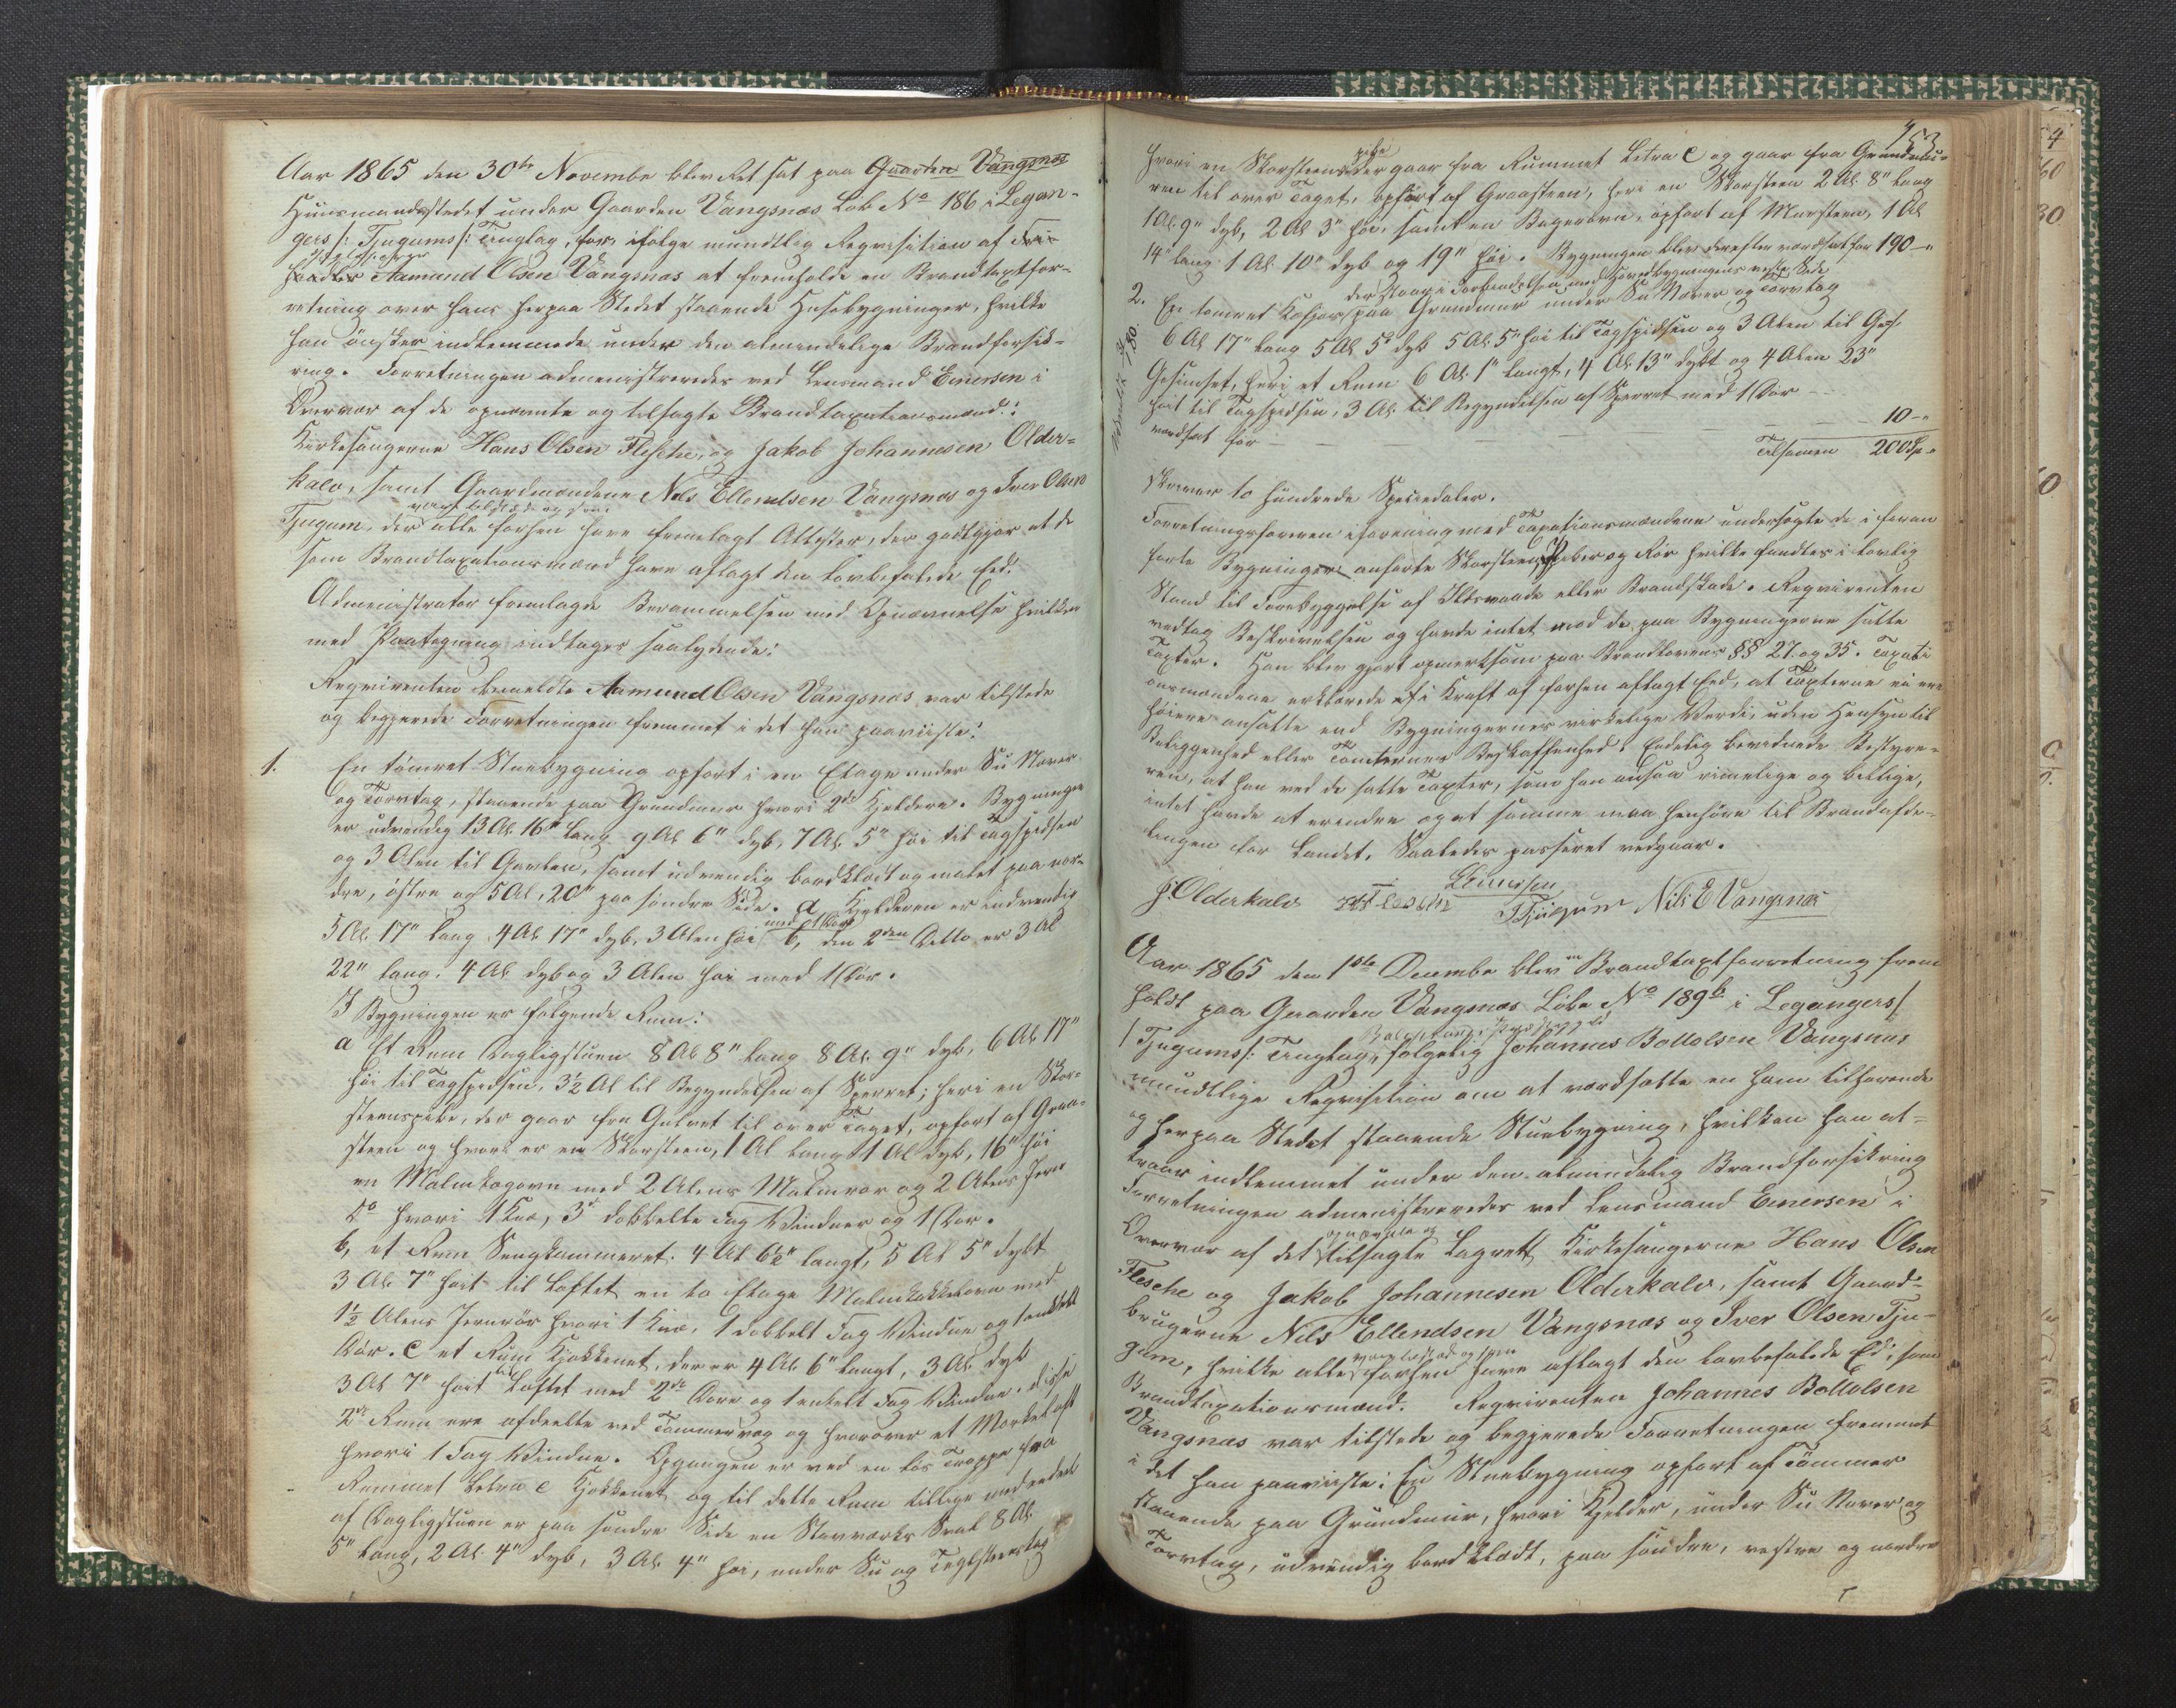 Aar 1865 den 30te Novembr blev Ret sat paa Gaarden Vangsnæs
Huusmandsstedet under Gaarden Vangsnæs Løb No 186 i Legan-
gers /: Tjugums :/ Tinglag, for ifølge mundtlig Reqvisition af
Aamund Olsen Vangsnæs at fremholde en Brandtaxtfor-
retning over hans herpaa Stedet staaende Husebygninger, hvilke
han ønsker indlemmede under den almindelige Brandforsik-
ring. Forretningen administreredes ved Lensmand Einersen i
Overvær af de opnævnte og tilsagte Brandtaxationsmænd:
Kirkesangerne Hans Olsen Flesche, og Jakob Johannesen Older-
kalv, samt Gaardmændene Nils Ellendsen Vangsnæs og Iver Olsen
vare tilstæde og som
Tjugum, der alle forhen have fremlagt Attester, der godtgjør at de
som Brandtaxationsmænd have aflagt den lovbefalede Eed.
Administrator fremlagde Berammelsen med Opnævnelse hvilken
med Paategning indtages saalydende:
Reqvirenten bemeldte Aamund Olsen Vangsnæs var tilstede
og begjerede Forretningen fremmet i det han paaviiste:
1. En tømret Stuebygning opført i en Etage under Su Næver
og Torvtag, staaende paa Grundmur hvori 2de Kjeldere. Bygningen
er udvendig 13 Al. 16" lang 9 Al 6" dyb, 7 Al. 5" høi til Tagspidsen
og 3 Alen til Gavlen, samt udvendig bordklædt og malet paa nor-
dre, østre og 5 Al, 20" paa søndre Side. a Kjelderen er indvendig
med 1 Dør
5 Al. 17" lang 4 Al 17" dyb, 3 Alen høi b, den 2den Ditto er 3 Al
22" lang, 4 Al dyb og 3 Alen høi med 1 Dør.
I Bygningen er følgende Rum:
a Et Rum Dagligstuen 8 Al 8" lang 8 Al. 9" dyb, 6 Al 17"
høi til Tagspidsen, 3½ Al til Begyndelsen af Sperret; heri en Skor-
steenspibe, der gaar fra Gulvet til over Taget, opført af Graa-
steen og hvori er en Skorsteen, 1 Al lang 1 Al dyb, 16" høi
en Malmkogovn med 2 Alens Malmrør og 2 Alens Jern
do hvori 1 Knæ, 3 dobbelte Fag Vinduer og 1 Dør.
b, et Rum Sengkammeret. 4 Al 6½" langt, 5 Al 5" dybt
3 Al. 7" høit til Loftet en to Etage Malmkakkelovn med
1½ Alens Jernrør hvori 1 Knæ, 1 dobbelt Fag Vindue og 1 enkelt
Dør. c et Rum Kjøkkenet, der er 4 Al. 6" langt, 3 Al. dybt
til
3 Al 7" høit Loftet med 2de Døre og 1 enkelt Fag Vindue. disse
2de Rum ere afdeelte ved Tømmervæg og hvorover et Mørkeloft
hvori 1 Fag Vindue. Opgangen er ved en løs Trappe fra
Rummet Letra c Kjøkkenet og til dette Rum tillige
af Dagligstuen er paa søndre Side en Stavværks Sval 8 Al.
5" lang, 2 Al. 4" dyb, 3 Al. 4" høi, under Su og Teglsteenstag
453
pibe
hvori en Skorsteens der gaar fra Rummet Letra C og gaar fra Grundmu-
ren til over Taget, opført af Graasteen, heri en Skorsteen 2 Al. 8" lang
1 Al. 9" dyb, 2 Al 3" høi, samt en Bagerovn, opført af Mursteen, 1 Al
14" lang 1 Al. 10" dyb og 19" høi. Bygningen blev derefter værdsat for 190-"
der staar i Forbindelsen med Hovedbygningens vestre Side
2. En tømret paa Grundmur under Su Næver og Torvtag
6 Al 17" lang 5 Al 5" dyb 5 Al. 5" høi til Tagspidsen og 3 Alen til
Gesimset, heri et Rum 6 Al. 1" langt, 4 Al. 13" dybt og 4 Alen 23"
høit til Tagspidsen, 3 Al. til Begyndelsen af Sperret med 1 Dør - -
værdsat for - - - - - - 10-"
Tilsamen 200 Sp "
skriver to hundrede Speciedaler.
Forretningsføreren iforening med Taxationsmændene undersøgte de i foran
førte Bygninger anførte Skorsteens Piber og Rør hvilke fandtes i lovlig
Stand til Forebyggelse af Ildsvaade eller Brandskade. Reqvirenten
vedtog Beskrivelsen og havde intet mod de paa Bygningerne satte
Taxter. Han blev gjort opmerksom paa Brandlovens §§ 27 og 35. Taxati
onsmændene erklærede i Kraft af forhen aflagt Eed, at Taxterne ei ere
høiere ansatte end Bygningernes virkelige Værdi, uden Hensyn til
Beliggenhed eller Tomternes Beskaffenhed. Endelig bevidnede Bestyre-
ren, at han ved de satte Taxter, som han ansaa rimelige og billige,
intet havde at erindre og at samme maa henhøre til Brandafde-
lingen for Landet. Saaledes passeret vedgaar.
LEinersen
J. Olderkalv Tjugum Nils E Vangsnæs
Aar 1865 den 1ste Decembr blev en Brandtaxtforretning frem
holdt paa Gaarden Vangsnæs Løbe No 189b i Legangers /:
/ Tjugums/: Tinglag, følgelig Johannes Bottolsen Vangsnæs
mundtlige Reqvisition om at værdsætte en ham tilhørende
og herpaa Stedet staaende Stuebygning, hvilken han at-
traar indlemmet under den almindelig Brandforsikring
Forretningen administreredes ved Lensmand Einersen i
opnævnte og
Overvær af det tilsagte Lagrett Kirkesangerne Hans Olsen
Flesche og Jakob Johannesen Olderkalv, samt Gaard-
brugerne Nils Ellendsen Vangsnæs og Iver Olsen Tju-
gum, hvilke alle forhen have aflagt den lovbefalede Ed, som
Brandtaxationsmænd. Reqvirenten Johannes Bottolsen
Vangsnæs var tilstede og begjerede Forretningen fremmet
i det han paaviiste: En Stuebygning opført af Tømmer
staaende paa Grundmur, hvori Kjelder, under Su Næver og
Torvtag, udvendig bordklædt, paa søndre, vestre og nordre